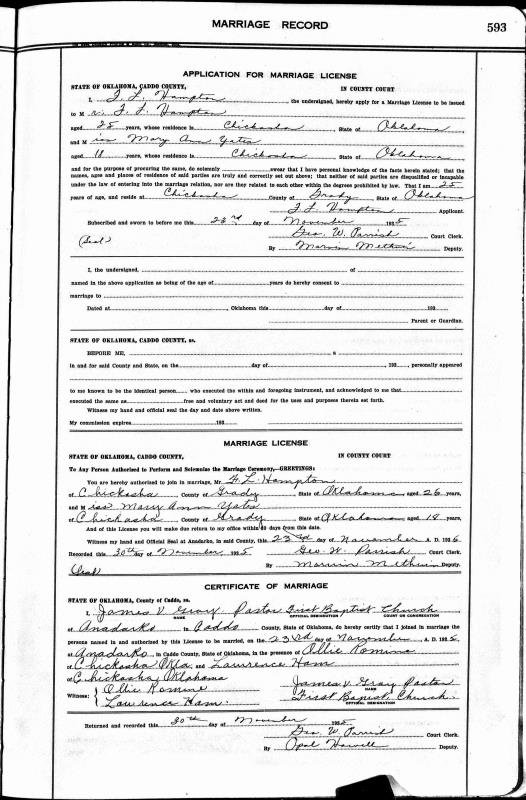 MARRIAGE RECORD 593
APPLICATION FOR MARRIAGE LICENSE
STATE OF OKLAHOMA, CADDO COUNTY, IN COUNTY COURT
I, F. L. Hampton, the undersigned, hereby apply for a Marriage License to be issued
to M r. F. L. Hampton
aged 25 years, whose residence is Chickasha, State of Oklahoma
and M iss Mary Ann Yates
aged 18 years, whose residence is Chickasha State of Oklahoma
and for the purpose of procuring the same, do solemnly swear that I have personal knowledge of the facts herein stated; that the
names, ages and places of residence of said parties are truly and correctly set out above; that neither of said parties are disqualified or incapable
under the law of entering into the marriage relation, nor are they related to each other within the degrees prohibited by law. That I am 25
years of age, and reside at Chickasha County of Grady State of Oklahoma
F. L. Hampton Applicant.
Subscribed and sworn to before me this 23rd day of November 1935
(Seal) Geo. W. Parrish Court Clerk.
By Marvin Methvin Deputy.
I, the undersigned, of
named in the above application as being of the age of years do hereby consent to
marriage to
Dated at , Oklahoma this day of 193
Parent or Guardian.
STATE OF OKLAHOMA, CADDO COUNTY, ss.
BEFORE ME, a
in and for said County and State, on the day of 193 , personally appeared
to me known to be the identical person who executed the within and foregoing instrument, and acknowledged to me that
executed the same as free and voluntary act and deed for the uses and purposes therein set forth.
Witness my hand and official seal the day and date above written.
My commission expires 193
MARRIAGE LICENSE
STATE OF OKLAHOMA, CADDO COUNTY, IN COUNTY COURT
To Any Person Authorized to Perform and Solemnize the Marriage Ceremony,—GREETINGS:
You are hereby authorized to join in marriage, Mr. F. L. Hampton
of Chickasha County of Grady, State of Oklahoma aged 25 years,
and M iss Mary Ann Yates
of Chickasha County of Grady, State of Oklahoma aged 18 years,
And of this License you will make due return to my office within 30 days from this date.
Witness my Hand and Official Seal at Anadarko, in said County, this 23rd day of November A. D. 1935
Recorded this 30th day of November, 1935 Geo. W. Parrish Court Clerk.
(Seal) By Marvin Methvin Deputy.
CERTIFICATE OF MARRIAGE
STATE OF OKLAHOMA, County of Caddo, ss.
I, James V. Gray Pastor First Baptist Church
NAME OFFICIAL DESIGNATION COURT OR CONGREGATION
of Anadarko in Caddo County, State of Oklahoma, do hereby certify that I joined in marriage the
persons named in and authorized by this License to be married, on the 23rd day of November A. D. 1935,
at Anadarko, in Caddo County, State of Oklahoma, in the presence of Ollie Romine
of Chickasha Okla. and Lawrence Ham
of Chickasha, Oklahoma
Witness: Ollie Romine James V. Gray Pastor
NAME
Lawrence Ham. First Baptist Church.
OFFICIAL DESIGNATION
Returned and recorded this 30th day of November 1935.
Geo. W. Parrish Court Clerk.
By Opal Howell Deputy.